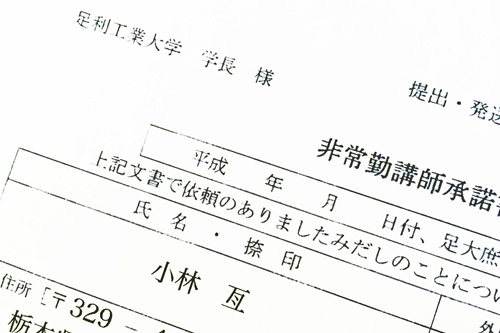 足利工業大学 学長 様
提出・発送
非常勤講師承諾書
平成 年 月 日付、足大庶
上記文書で依頼のありましたみだしのことについ
氏名・捺印
小林 亙
住所 [〒329 -
栃木県